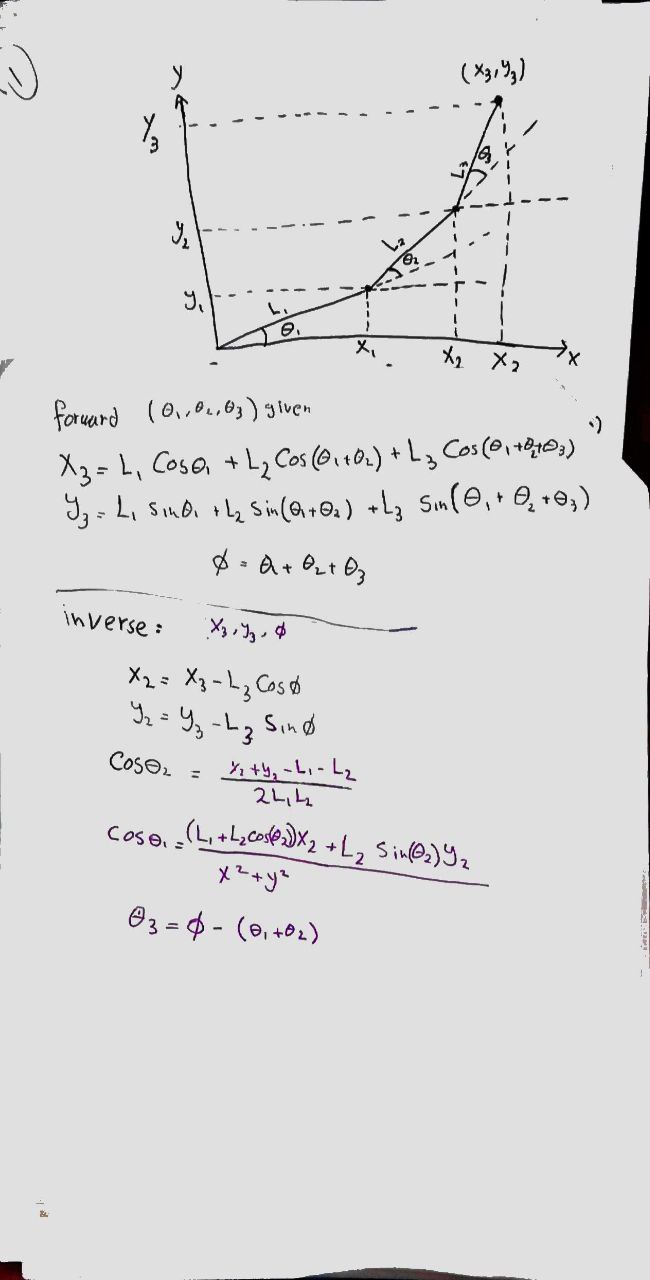 1
y
(x₃, y₃)
y₃
L₃
θ₃
y₂
L₂
θ₂
y₁
L₁
θ₁
x₁
x₂
x₂
x
forward (θ₁, θ₂, θ₃) given
x₃ = L₁ Cosθ₁ + L₂ Cos(θ₁+θ₂) + L₃ Cos(θ₁+θ₂+θ₃)
y₃ = L₁ sinθ₁ + L₂ sin(θ₁+θ₂) + L₃ sin(θ₁ + θ₂ + θ₃)
φ = θ₁ + θ₂ + θ₃
inverse: x₃, y₃, φ
x₂ = x₃ - L₃ Cosφ
y₂ = y₃ - L₃ Sinφ
Cosθ₂ = x₂ + y₂ - L₁ - L₂
2L₁L₂
Cosθ₁ = (L₁ + L₂cos(θ₂))x₂ + L₂ Sin(θ₂) y₂
x² + y²
θ₃ = φ - (θ₁ + θ₂)